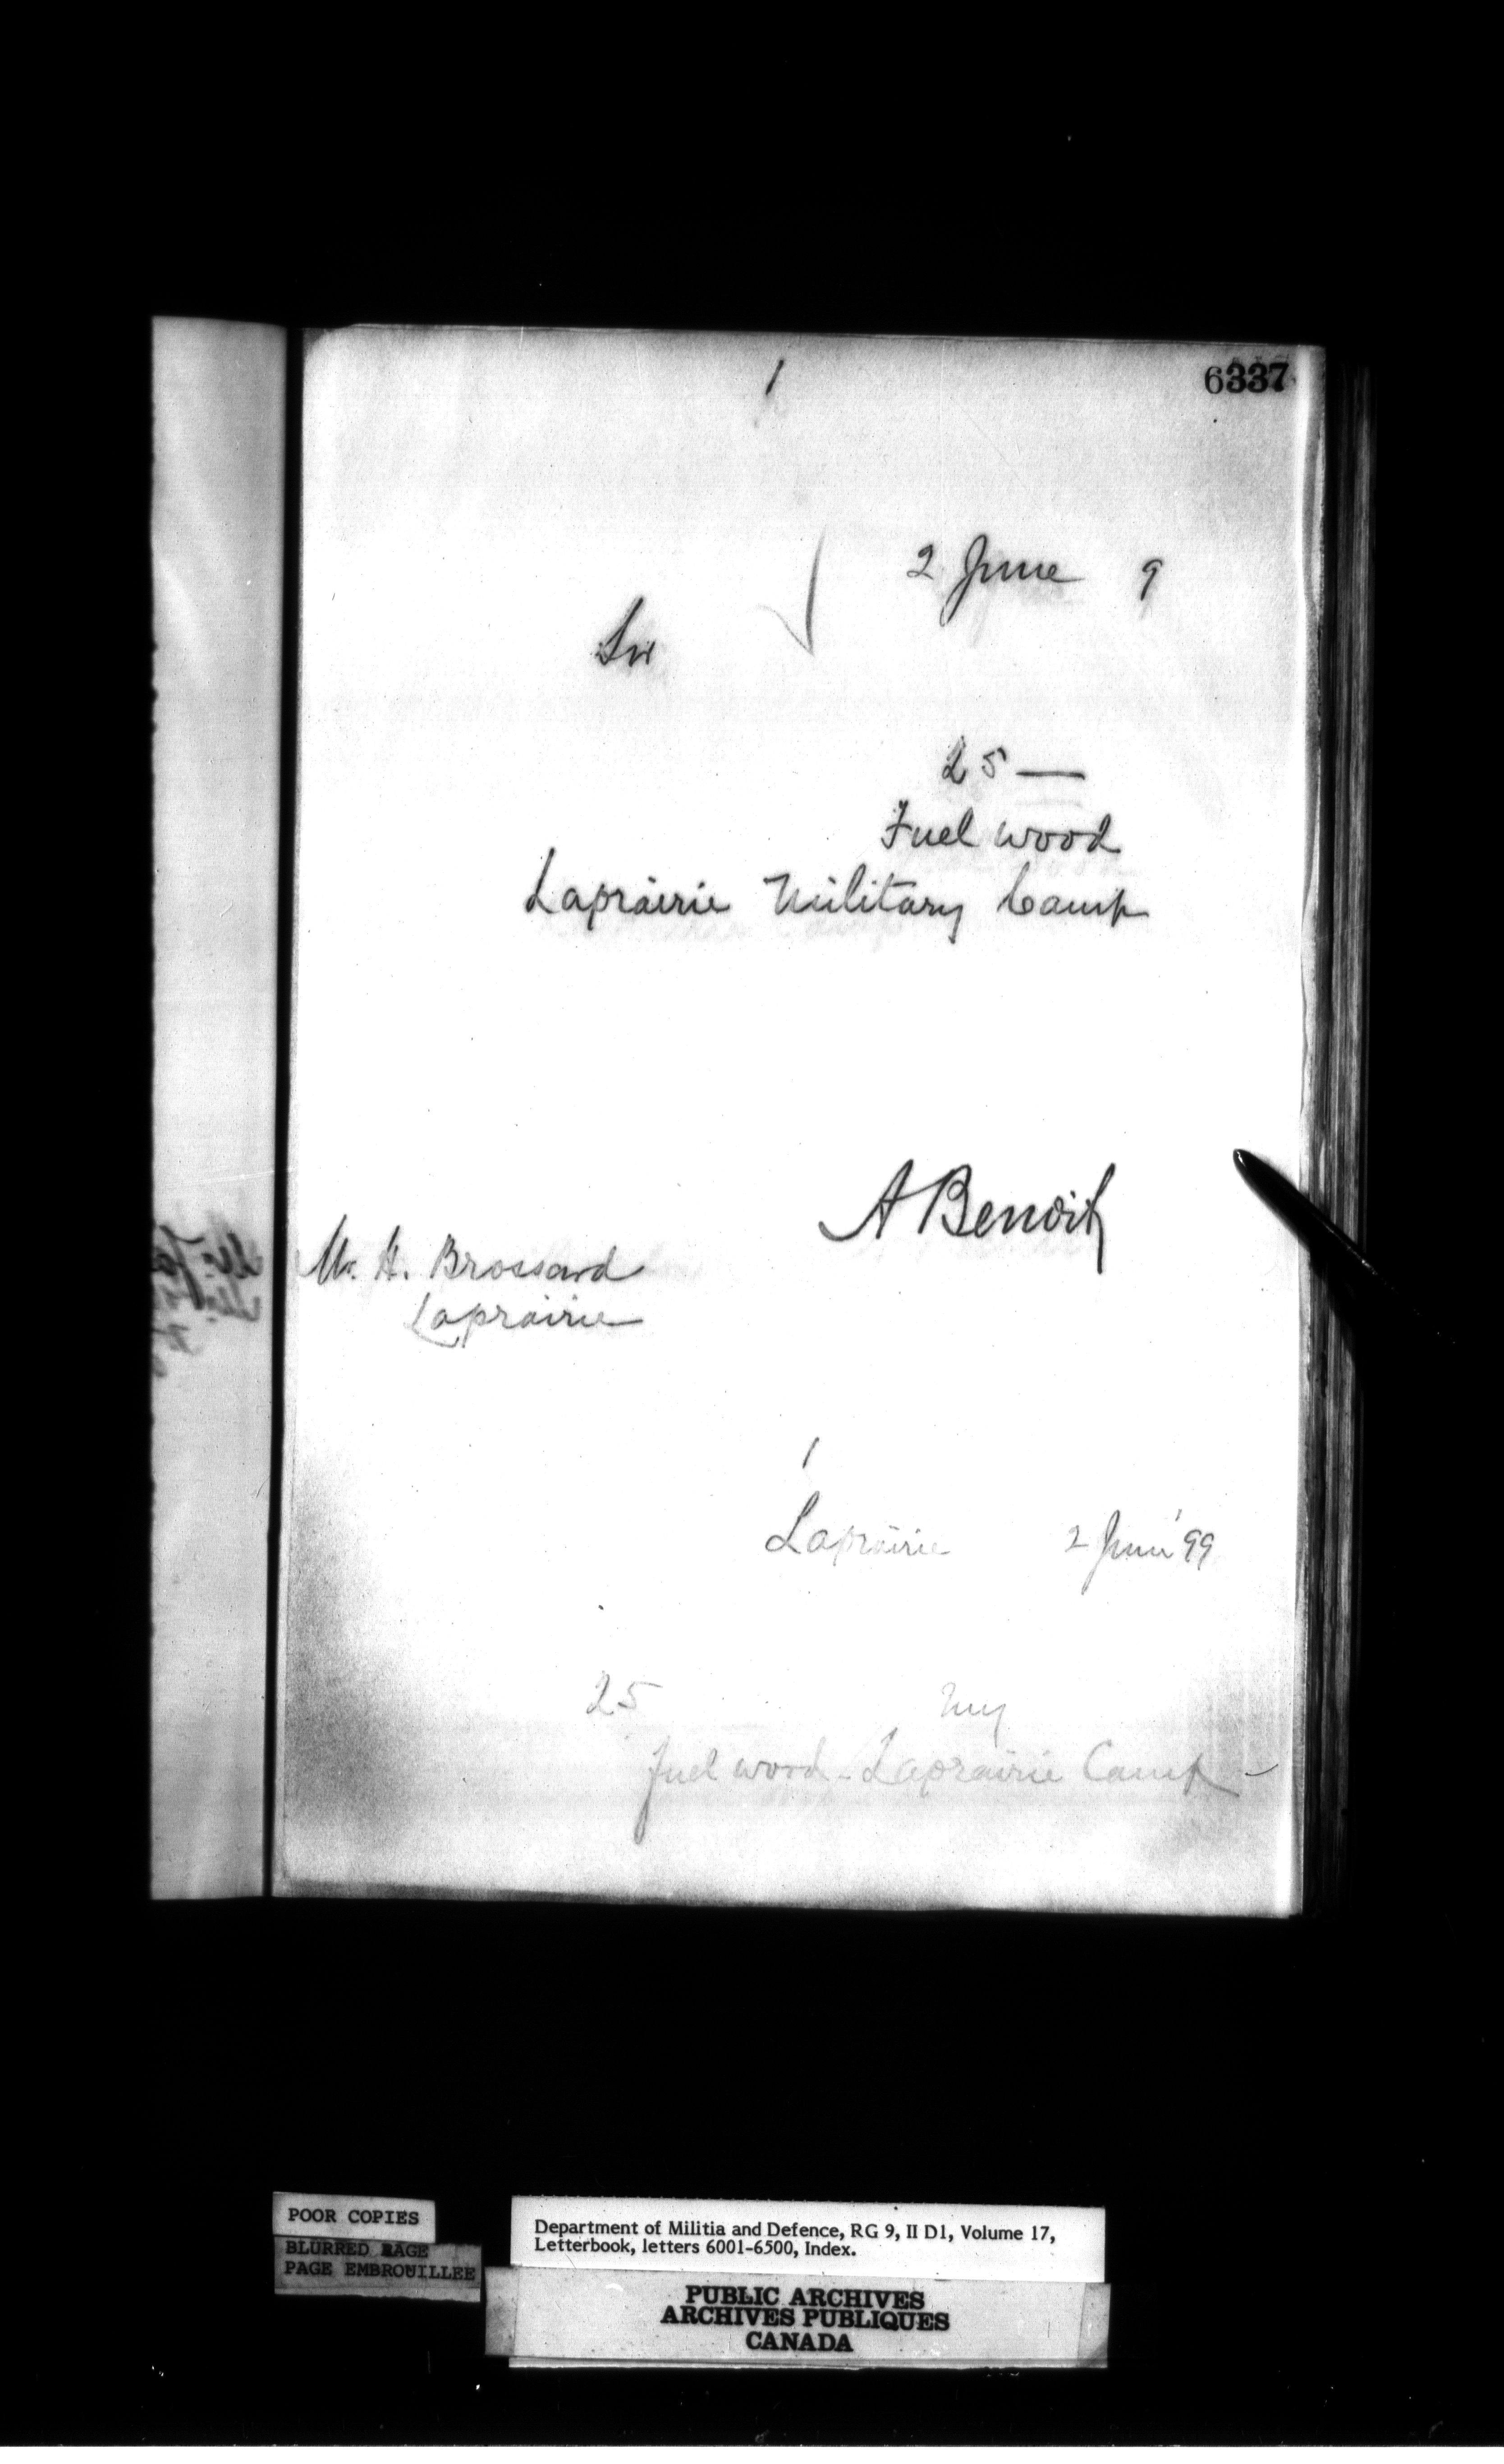 1
6337
2 June 9
Sir
25 —
Fuel wood
Laprairie Military Camp
A Benoit
Mr. H. Brossard
Laprairie
1
Laprairie 2 June '99
25 my
Fuel wood - Laprairie Camp -
POOR COPIES
BLURRED PAGE
PAGE EMBROUILLEE
Department of Militia and Defence, RG 9, II D1, Volume 17,
Letterbook, letters 6001-6500, Index.
PUBLIC ARCHIVES
ARCHIVES PUBLIQUES
CANADA